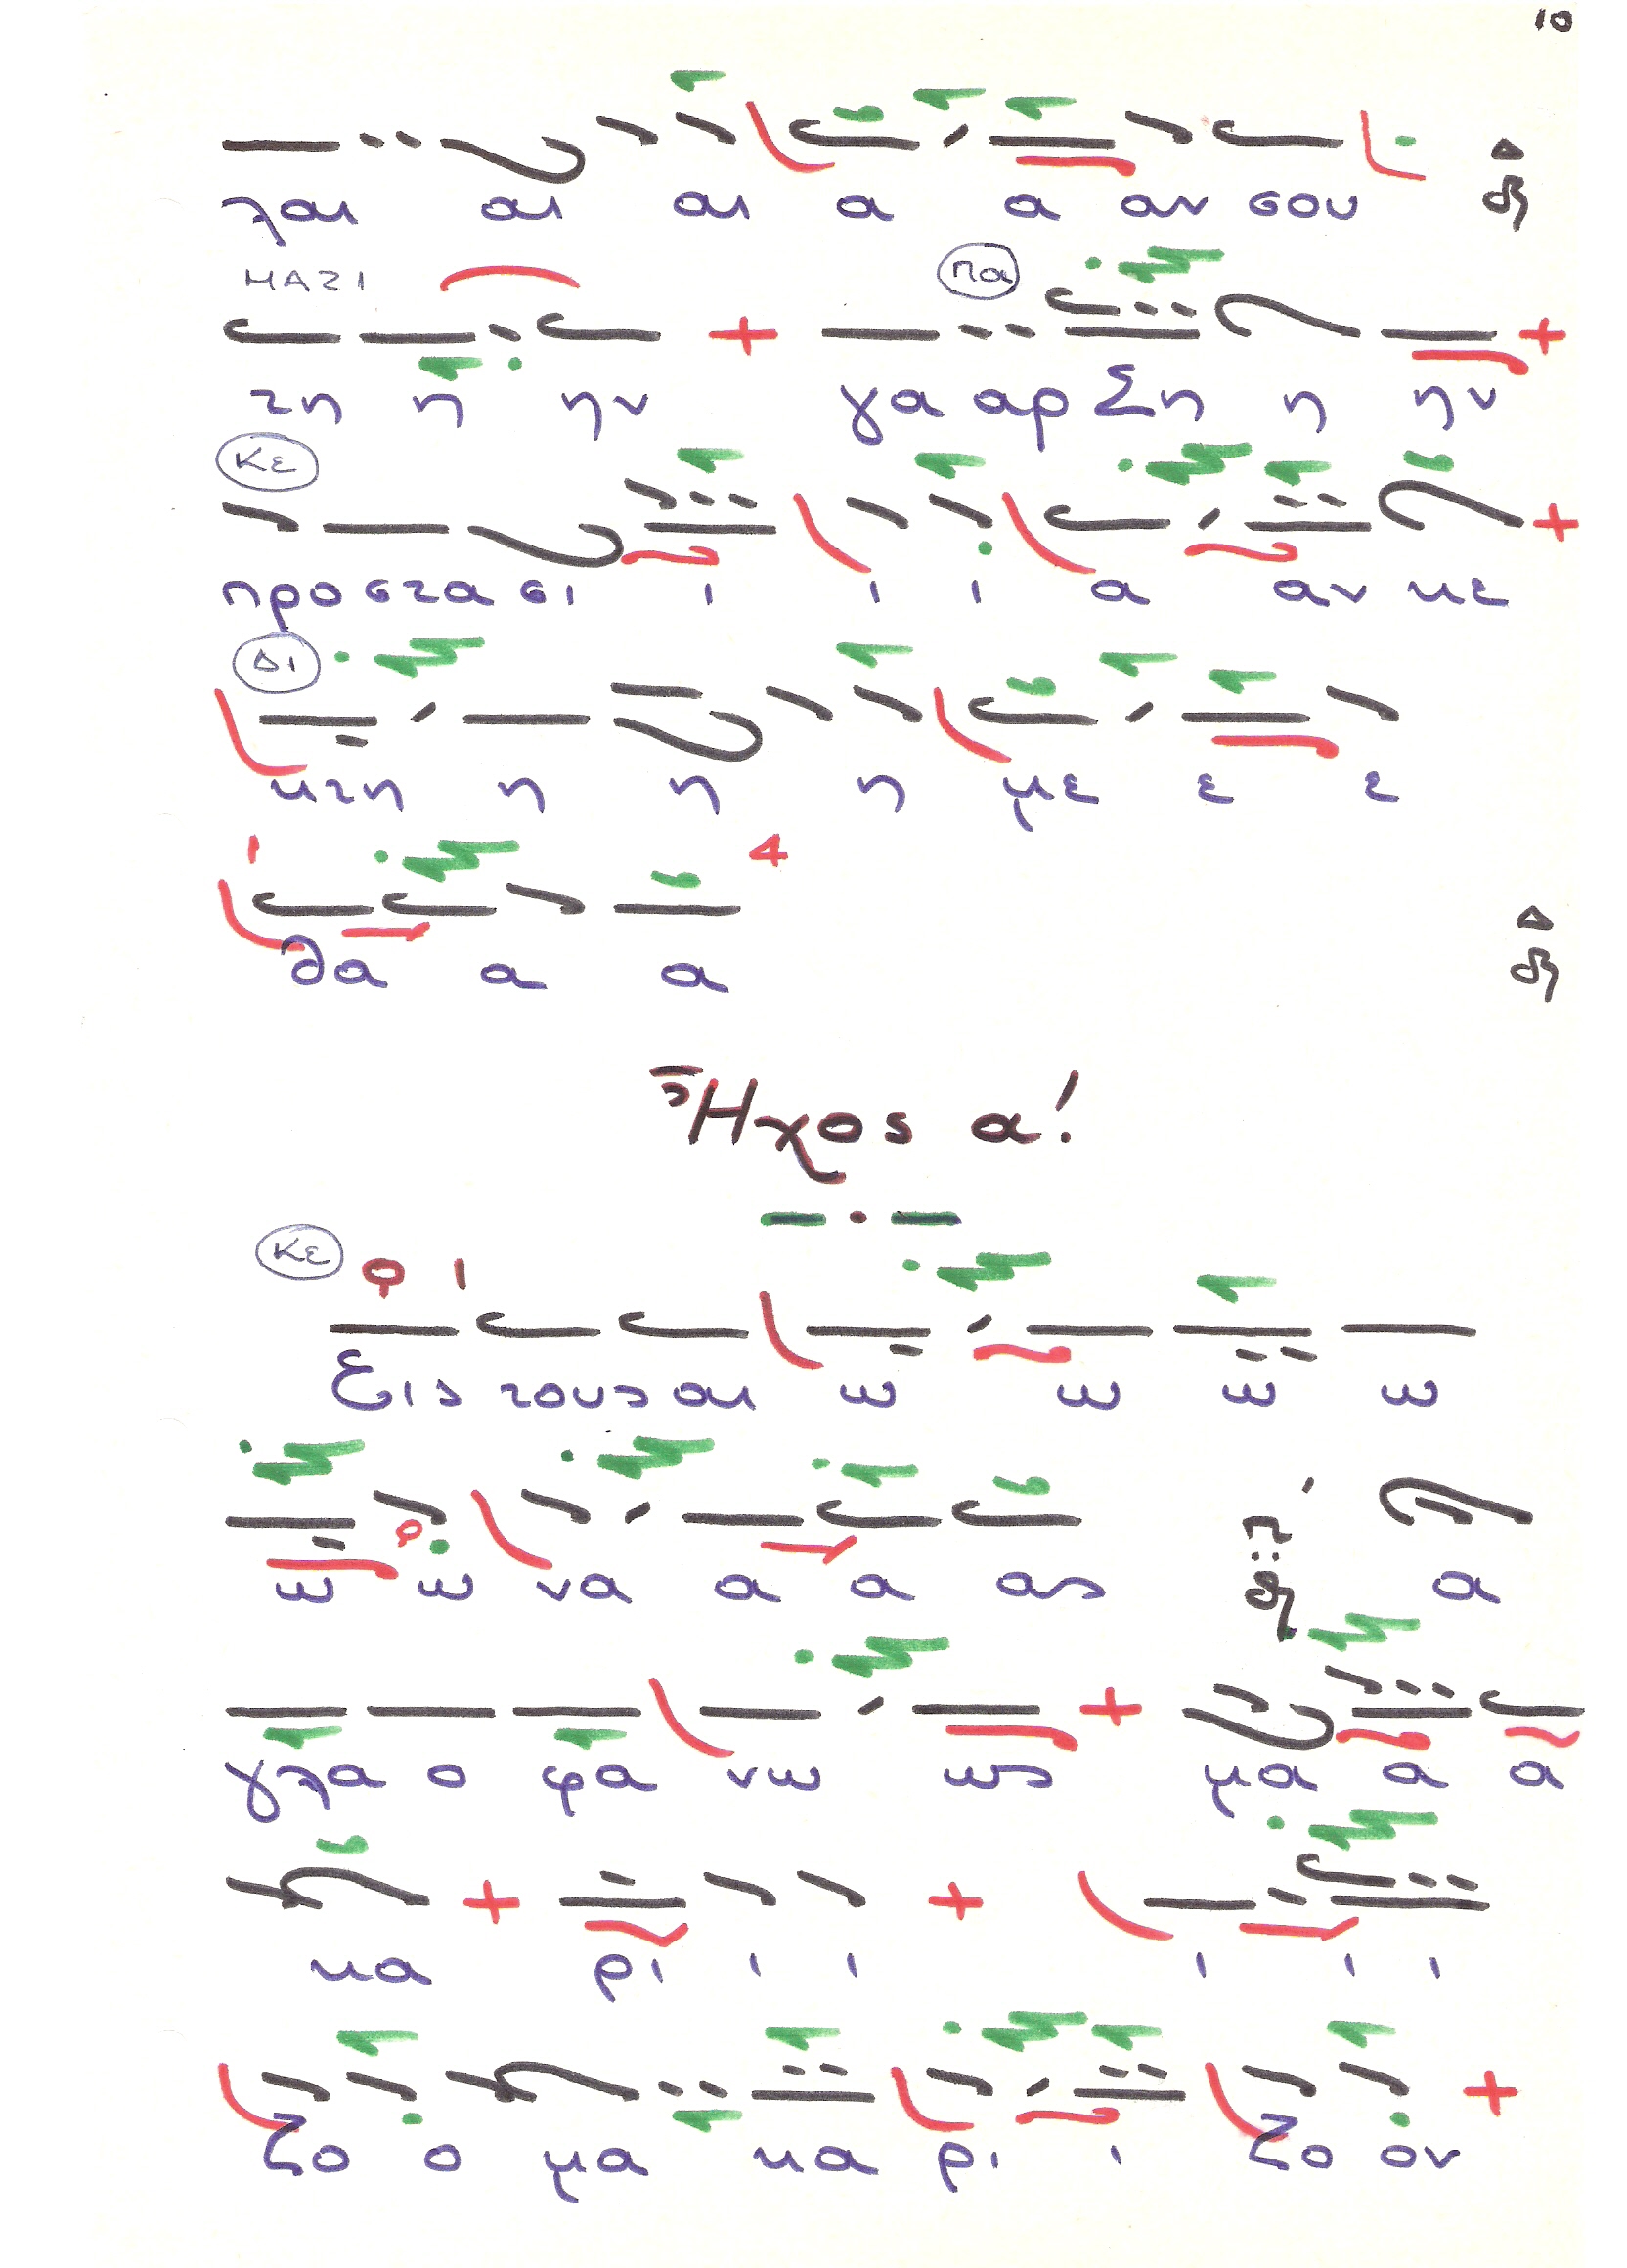 10
λαι αι αι α α αν σου Δ
ΜΑΖΙ Πα
τη η ην γα αρ Ση η ην
Κε
προ στα σι ι ι ι α αν κε
Δι
κτη η η η με ε ε
1 4
θα α α Δ
Ἦχος α!
Κε
Εις τους αι ω ω ω ω
ω ω να α α ας α
γλα ο φα νω ως μα α α
κα ρι ι ι ι ι ι
ζο ο μα κα ρι ι ζο ον